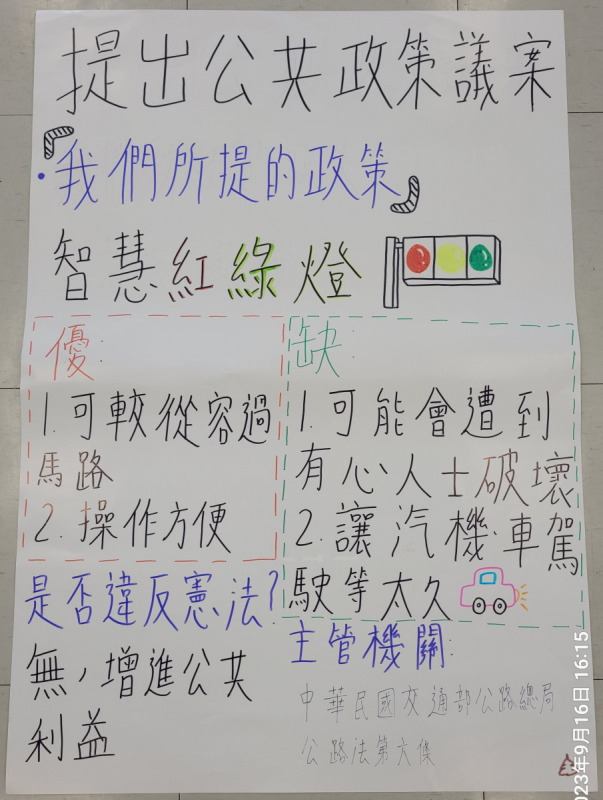 提出公共政策議案
•『我們所提的政策』
智慧紅綠燈
優:
1.可較從容過
馬路
2.操作方便
缺:
1.可能會遭到
有心人士破壞
2.讓汽機車駕
駛等太久
是否違反憲法?
無,增進公共
利益
主管機關:
中華民國交通部公路總局
公路法第六條
023年9月16日 16:15